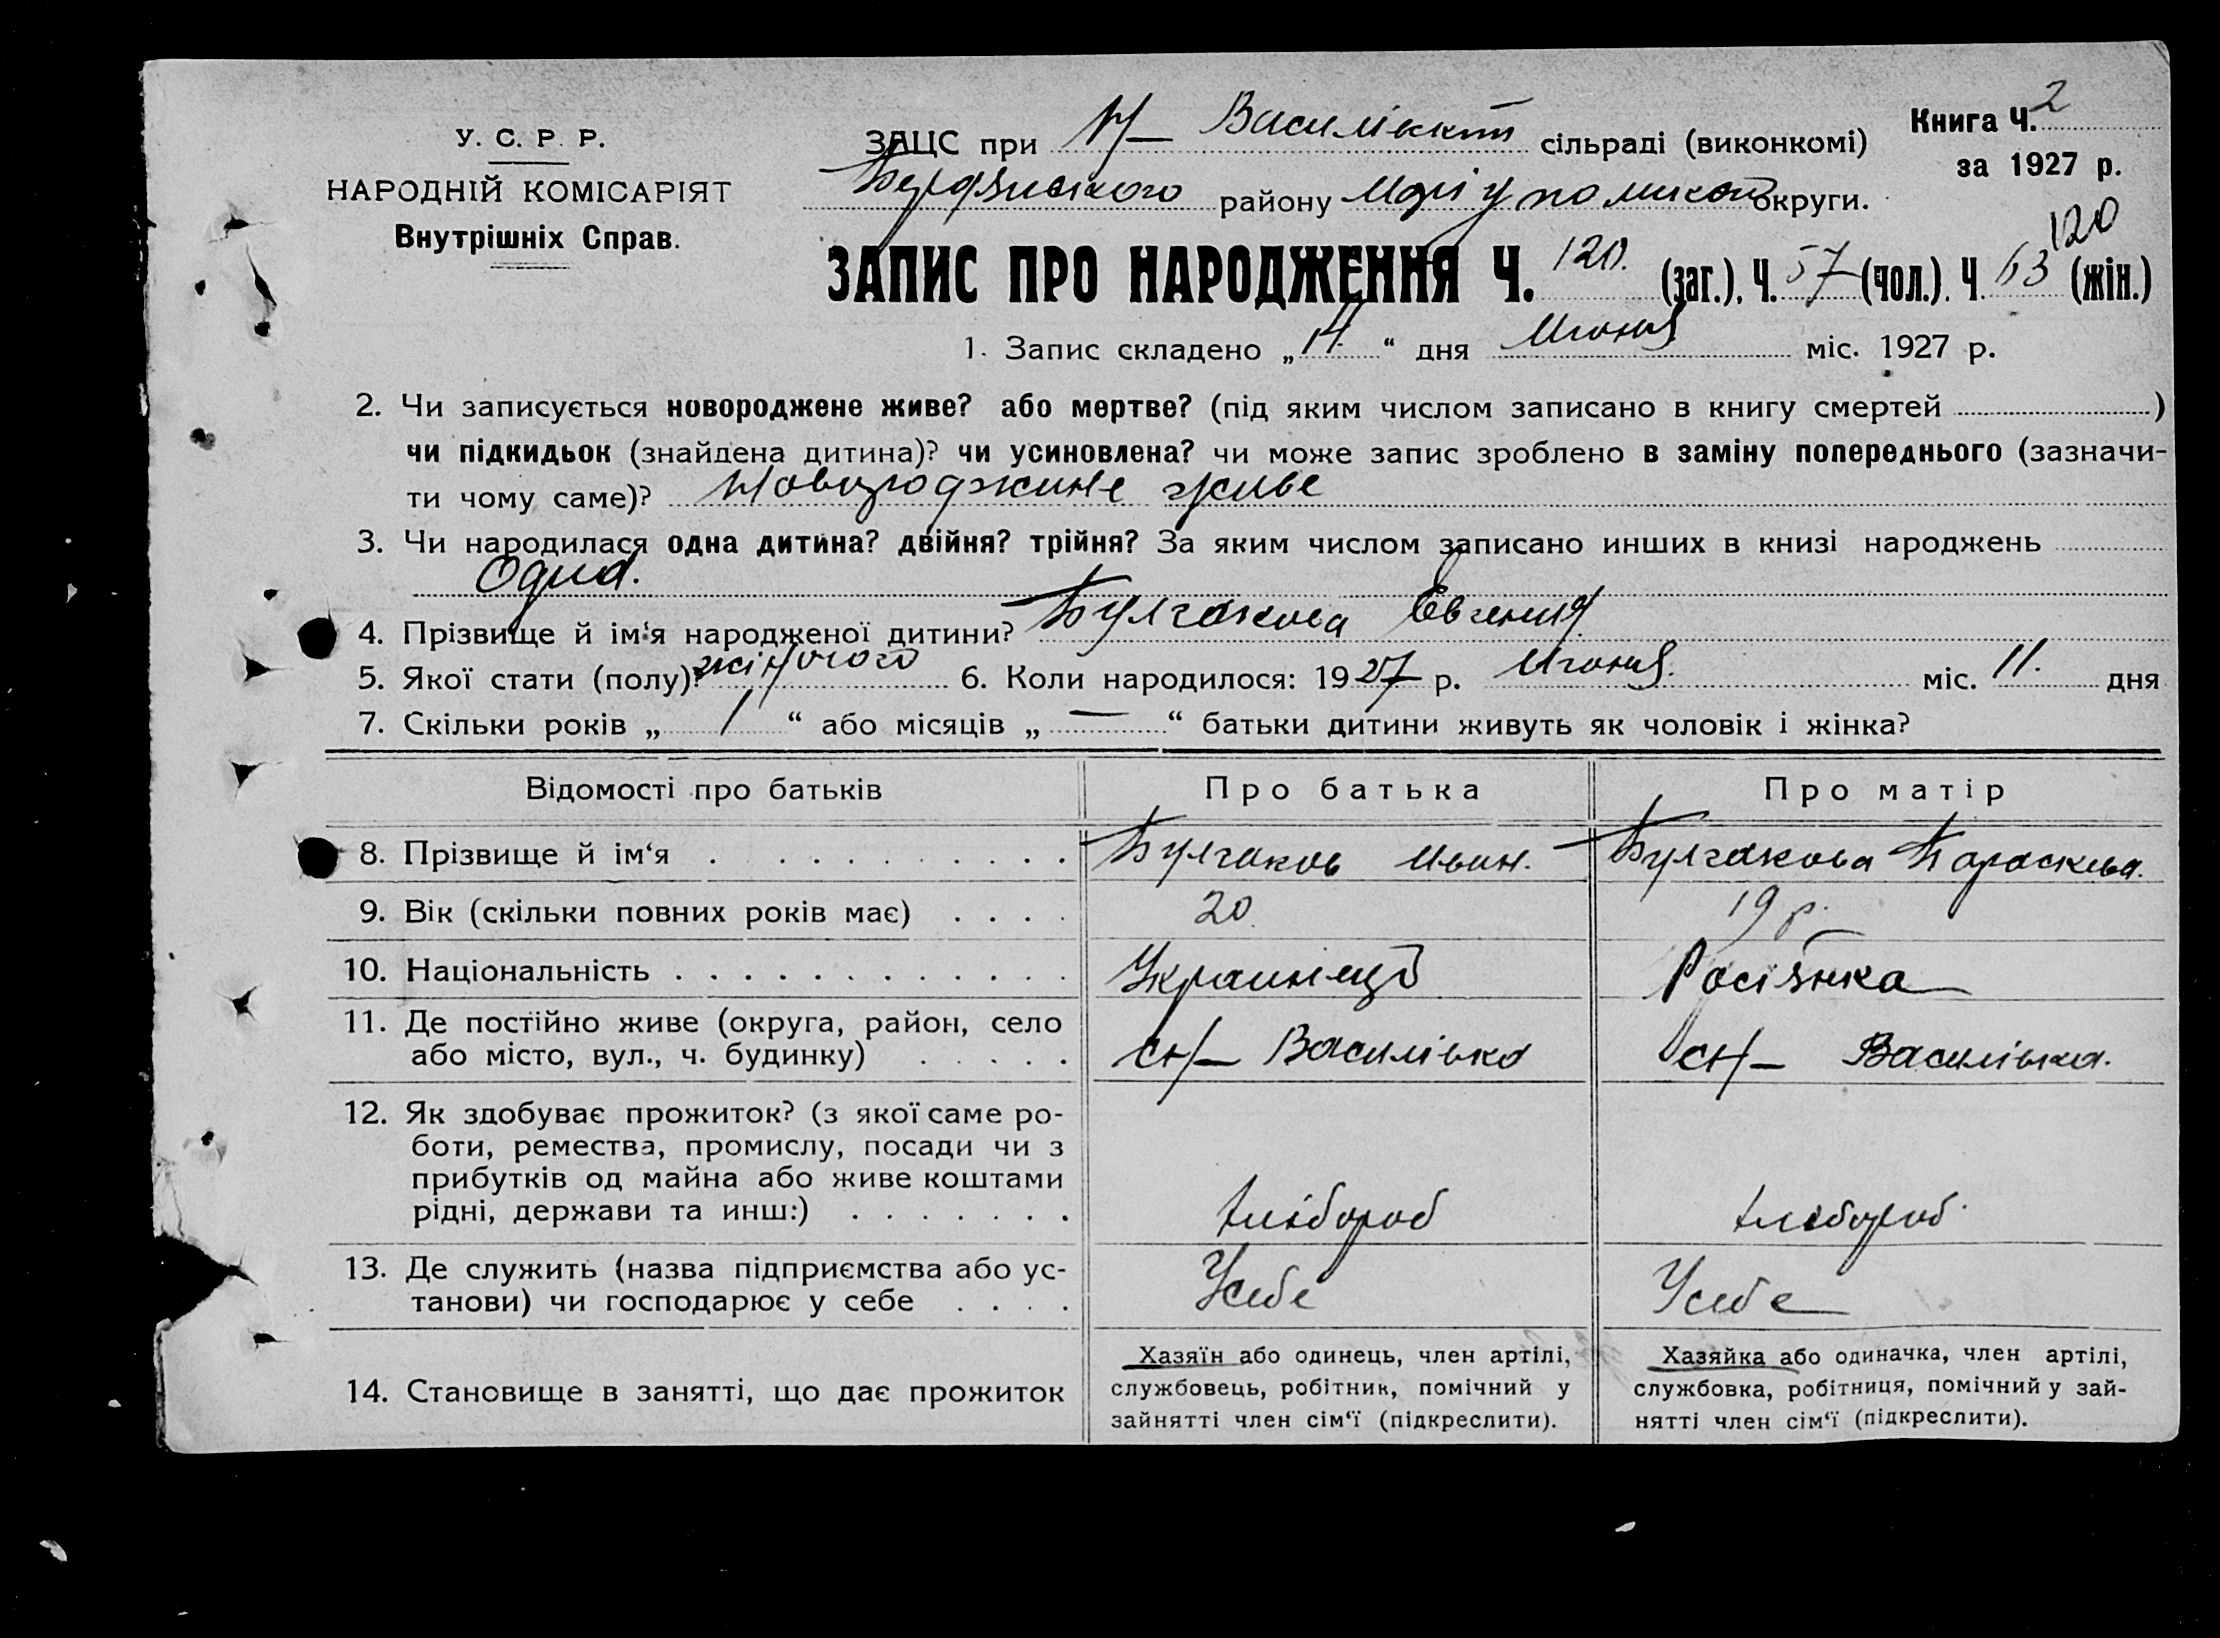 У. С. Р. Р.
НАРОДНІЙ КОМІСАРІЯТ
Внутрішніх Справ.
Книга Ч. 2
за 1927 р.
ЗАЦС при Н Василівкт сільраді (виконкомі)
Бердянського району Маріупольської округи.
120
ЗАПИС ПРО НАРОДЖЕННЯ Ч. 120. (заг.), Ч. 57 (чол.). Ч 63 (жін.)
1. Запис складено „ “ дня Июня міс. 1927 р.
2. Чи записується новороджене живе? або мертве? (під яким числом записано в книгу смертей )
чи підкидьок (знайдена дитина)? чи усиновлена? чи може запис зроблено в заміну попереднього (зазначи-
ти чому саме)? Новороджине живе
3. Чи народилася одна дитина? двійня? трійня? За яким числом записано инших в книзі народжень
Одна.
4. Прізвище й ім‘я народженої дитини? Булгакова Евгения
5. Якої стати (полу)? жіночого 6. Коли народилося: 1927 р. Июня. міс. 11. дня
7. Скільки років „ 1 “ або місяців „ — “ батьки дитини живуть як чоловік і жінка?
Відомості про батьків Про батька Про матір
8. Прізвище й ім‘я Булгаков Иван. Булгакова Параскева.
9. Вік (скільки повних років має) 20. 19 р.
10. Національність Украинецъ Росіянка
11. Де постійно живе (округа, район, село
або місто, вул., ч. будинку) сН Василівка сН Василівка.
12. Як здобуває прожиток? (з якої саме ро-
боти, ремества, промислу, посади чи з
прибутків од майна або живе коштами
рідні, держави та инш:) хлібороб хлібороб.
13. Де служить (назва підприємства або ус-
танови) чи господарює у себе Усебе Усебе
14. Становище в занятті, що дає прожиток
Хазяїн або одинець, член артілі,
службовець, робітник, помічний у
зайнятті член сім‘ї (підкреслити).
Хазяйка або одиначка, член артілі,
службовка, робітниця, помічний у зай-
нятті член сім‘ї (підкреслити).